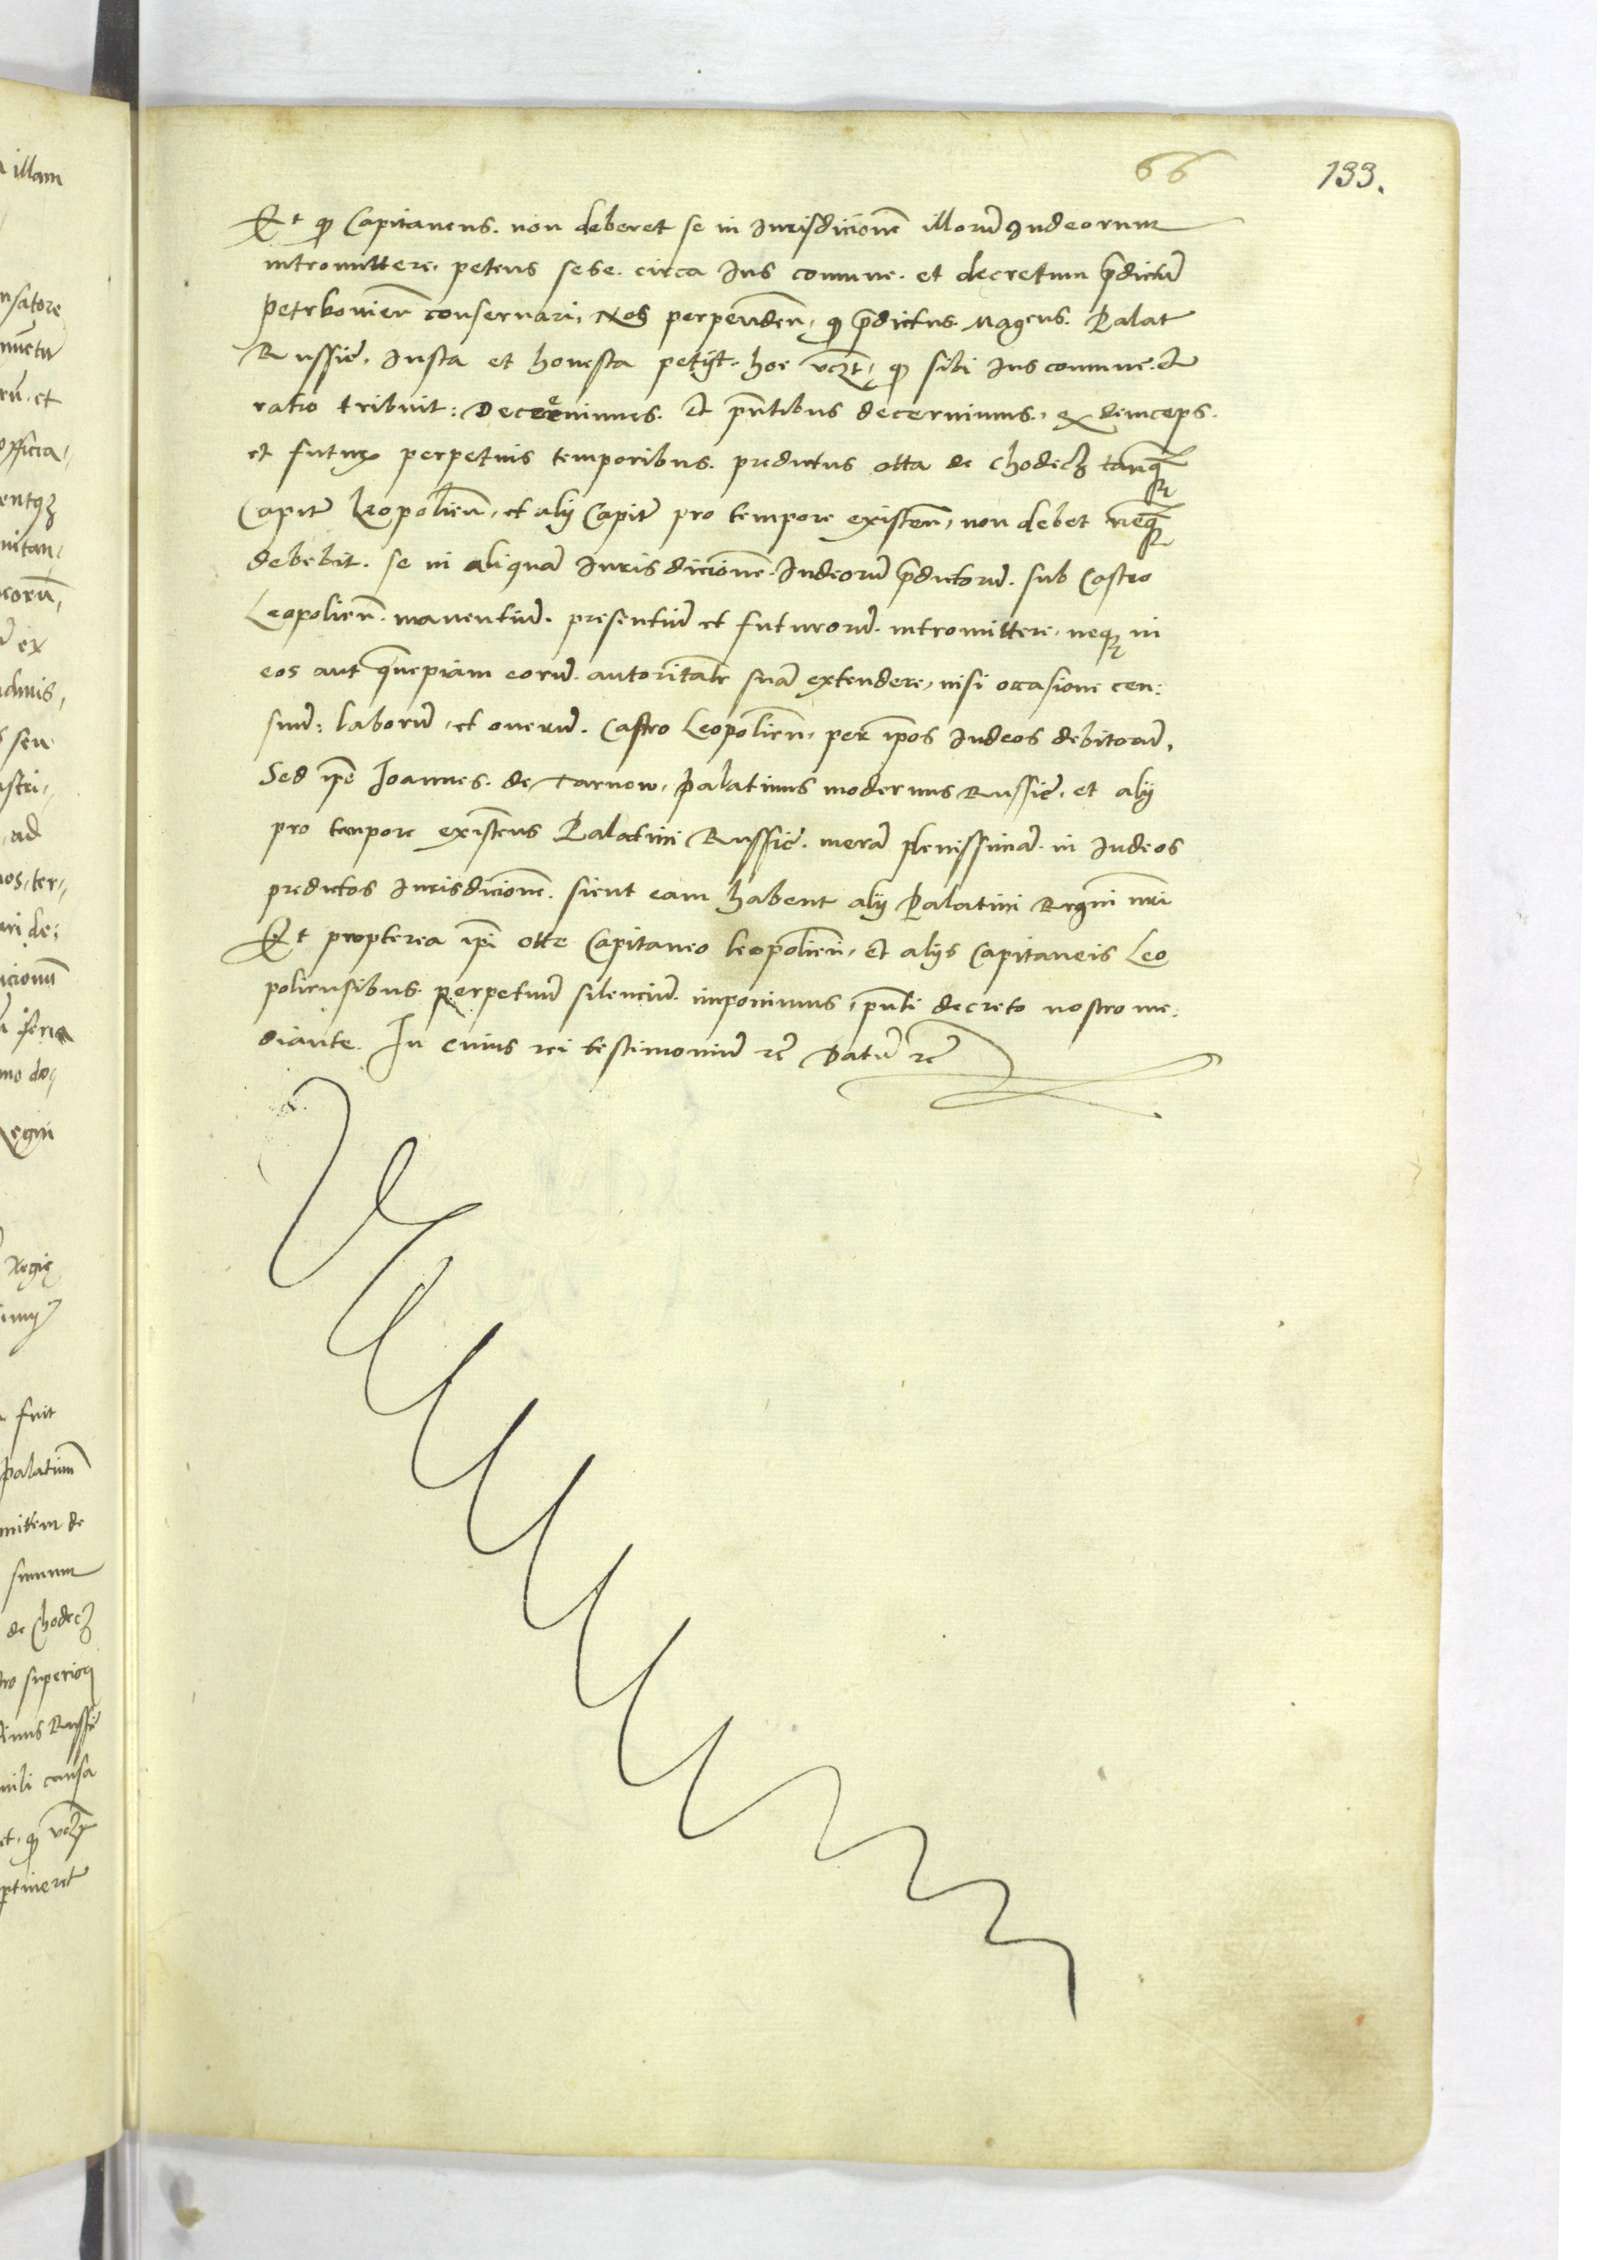 66 133.
Et qꝫ Capitaneus. non deberet se in Iurisdicionē illorū Iudeorum
intromittere. petens sese. circa Ius comune. et decretum p̄dictū
Petrkovień conseruari, Nos perpendeń, qꝫ p̄dictus. Magcus. Palat
Russie, Iusta et honesta petijt. hoc vczt, qꝫ sibi Ius comune. et
ratio tribuit: Decernimus. Et pn̄tibus decernimus, ex deinceps.
et futuris perpetuis temporibus. predictus Otta de Chodecz tanqꝫ
Capit Leopolień, et alij Capit pro tempore existeń, non debet neqꝫ
debebit. se in aliquā Iurisdicionē Iudeorū p̄dictorū. sub Castro
Leopolień. manentiū. presentiū et futurorū. intromittere, neqꝫ in
eos aut quempiam eorū. autoritatē suā extendere, nisi occasione cen:
suum: laborū, et onerū. Castro Leopolień, per ipos Iudeos debitorū,
Sed ipē Ioannes. de Tarnow, Palatinus modernus Russie, et alij
pro tempore existens Palatini Russie. merā plenissimā. in Iudeos
predictos Iurisdicionē. sicut eam habent alij Palatini Regni nri
Et propterea ipī Otte Capitaneo leopolień, Et alijs Capitaneis Leo
poliensibus. perpetuū silenciū. imponimus, pn̄ti decreto nostro me:
diante. In cuius rei testimoniū rc̄ Datū rc̄
illam
nsatore
rū. et
officia,
entqꝫ
nitan,
corū,
ex
seu
ad
os, ter,
ri de:
icionū
Regni
Regie
fuit
palatinū
mittem de
de Chodecz
superiori
inus Russie
causa
et, qꝫ vczt
ptineret